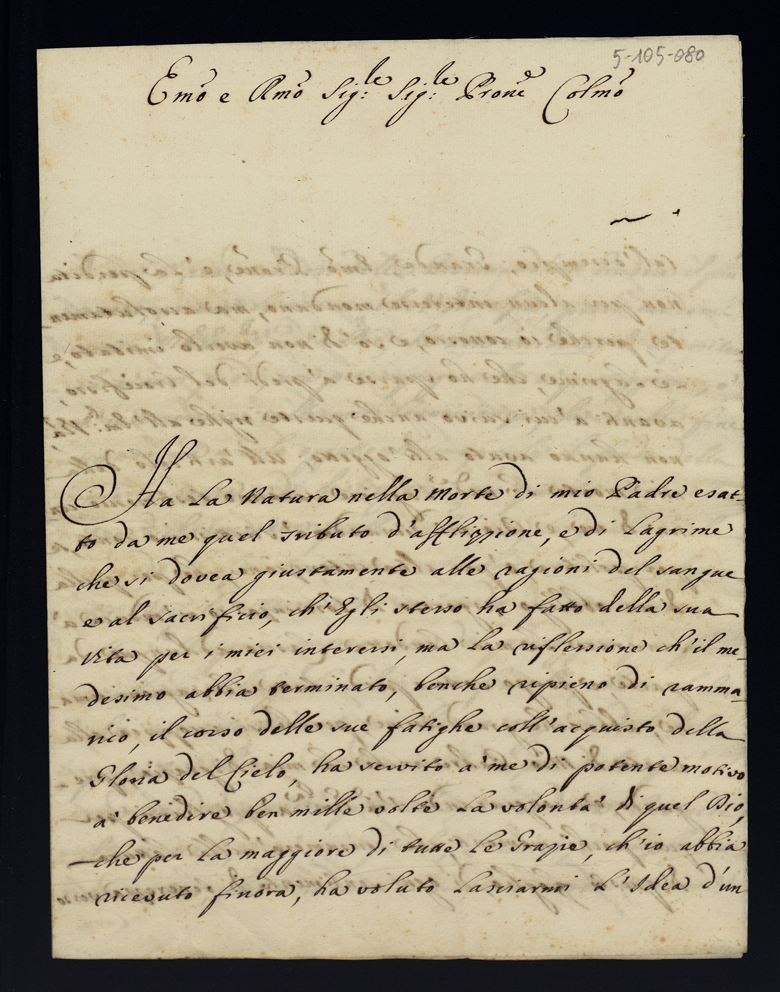 5-105-080
Emo e Rmo Sig.re Sig.re Prone Colmo
Ha La Natura nella Morte di mio Padre esat-
to da me quel tributo d'afflizzione, e di Lagrime
che si dovea giustamente alle ragioni del sangue
e al sacrificio, ch'Egli stesso ha fatto della sua
vita per i miei interessi, ma La riflessione ch'il me-
desimo abbia terminato, benche ripieno di ramma-
rico, il corso delle sue fatighe coll'acquisto della
Gloria del Cielo, ha servito a' me di potente motivo
a' benedire ben mille volte La volontà di quel Dio,
che per La maggiore di tutte Le Grazie, ch'io abbia
ricevuto finora, ha voluto Lasciarmi L'Idea d'un